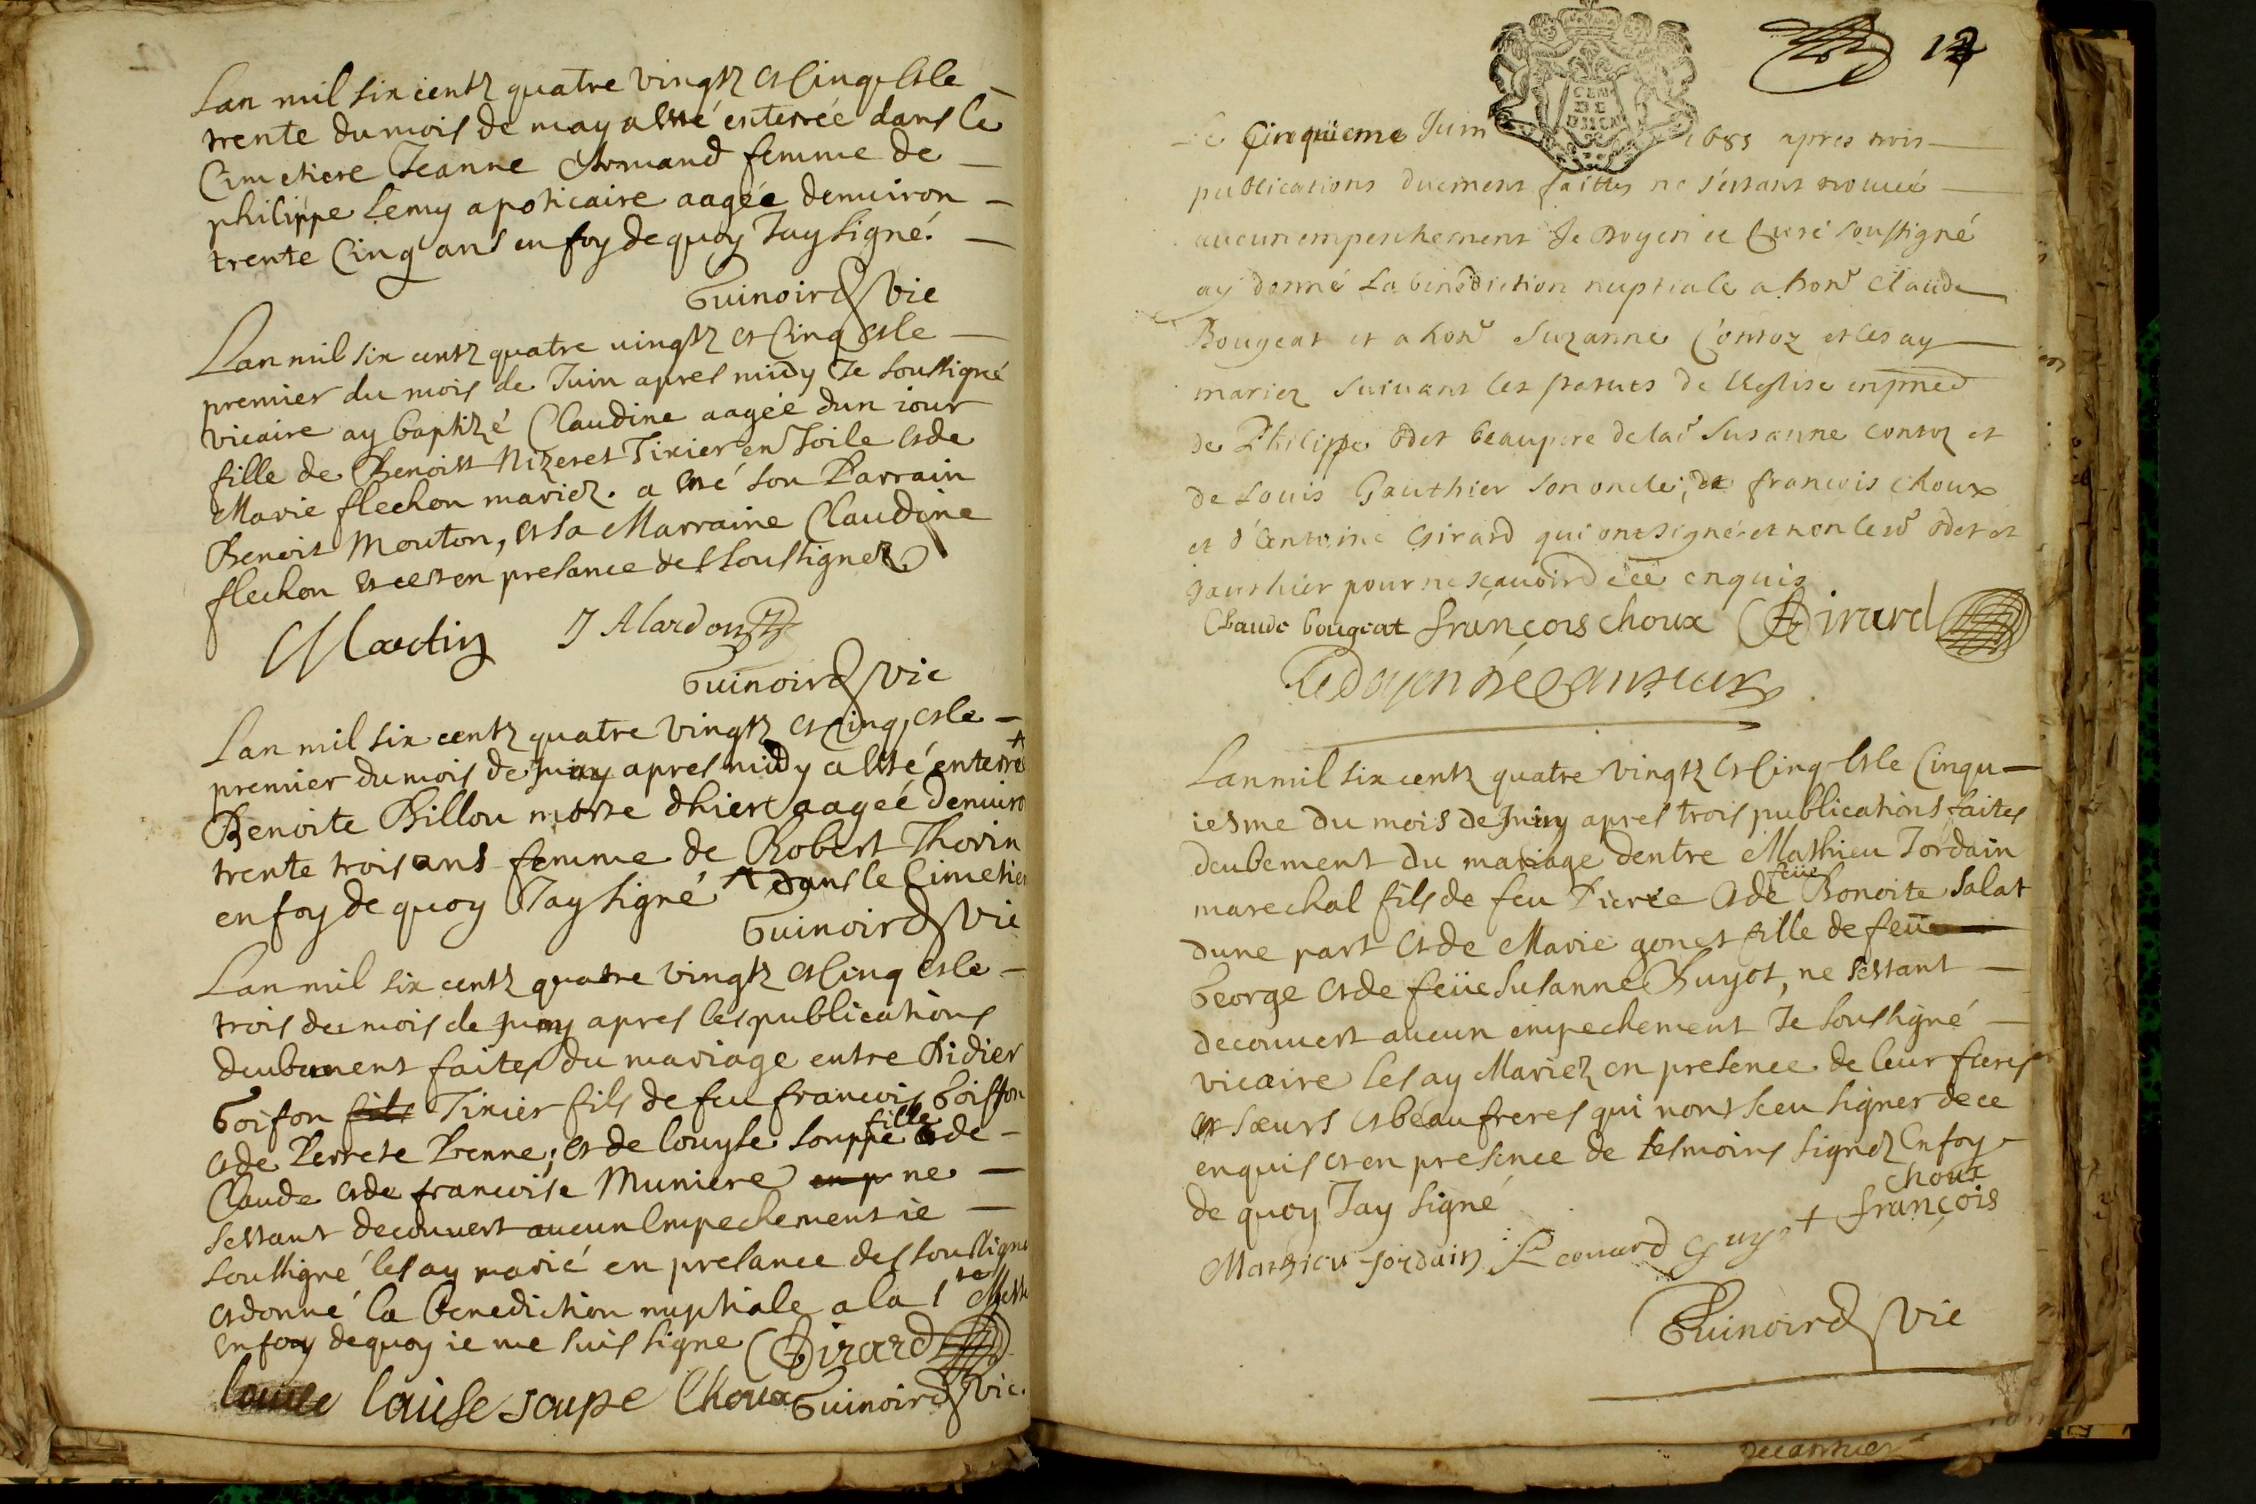 Lan mil six centz quatre vingtz et Cinq et le
trente du mois de may a esté enterrée dans le
Cimetiere Jeanne Armand femme de
philippe Lemy apoticaire aagée denuiron
trente Cinq ans en foy de quoy Jay signé.
Guinoird vic
Lan mil six centz quatre uingtz et Cinq et le
premier du mois de Juin apres midy Je soussigné
vicaire ay baptizé Claudine aagée dun iour
fille de Benoist Nizeret Tixier en Toile et de
Marie flechon mariez. a esté son Parrain
Benoit Mouton, et sa Marraine Claudine
flechon et ce en presance des soussignez
Martin J Alardon
Guinoird vic
Lan mil six centz quatre vingtz et Cinq, et le
premier du mois de juin apres midy a esté enterré
Benoite Billou morte dhier aageé denuiro
trente trois ans femme de Robert Thorin
en foy de quoy Jay signé dans le Cimetier
Guinoird vic
Lan mil six centz quatre vingtz et Cinq et le
trois du mois de juin apres les publications
deubement faites du mariage entre Didier
Goifon fils Tixier fils de feu francois Goiffon
et de Perrete Penne; et de louyse souppe fille de
Claude et de francoise Muniere en p ne
sestant decouuert aucun Empechement ie
soussigné les ay marié en presance des soussigne
et donné la benediction nuptiale a la 1re Messe
en foy de quoy ie me suis signe Girard
louise louise soupe Choux Guinoird vic.
12
Le Cinquieme Juin 1685 apres trois
publications duement faittes ne s'estant trouué
aucun empeschement Je Doyen et Curé soussigné
ay donné La benediction nuptiale a hon^e Claude
Bougeat et a hon^e Suzanne Contoz et les ay
mariez suiuant les statuts de l'Eglise en pnce
de Philippe Odet beaupere de lad^e Susanne contoz et
de Louis Gauthier son oncle; de francois choux
et d'Antoine Girard qui ont signé et non led^t Odet et
Gauthier pour ne sçauoir de ce enquis
Claude bougeat françois choux Girard
Lan mil six centz quatre vingtz et Cinq et le Cinqu
iesme du mois de Juin apres trois publications faites
deubement du mariage dentre Mathieu Jordain
marechal fils de feu Pierre et de feüe Bonoite Salat
dune part et de Marie gonet fille de feüe
George et de feüe Susanne Guyot, ne sestant
decouuert aucun empechement Je soussigné
vicaire les ay Mariez en presence de leur freres
et sœurs et beaufreres qui nont sceu signer de ce
enquis et en presence de tesmoins signez En foy
de quoy Jay signé
Mathieu jordain Leonard guyot françois choux
Guinoird vic